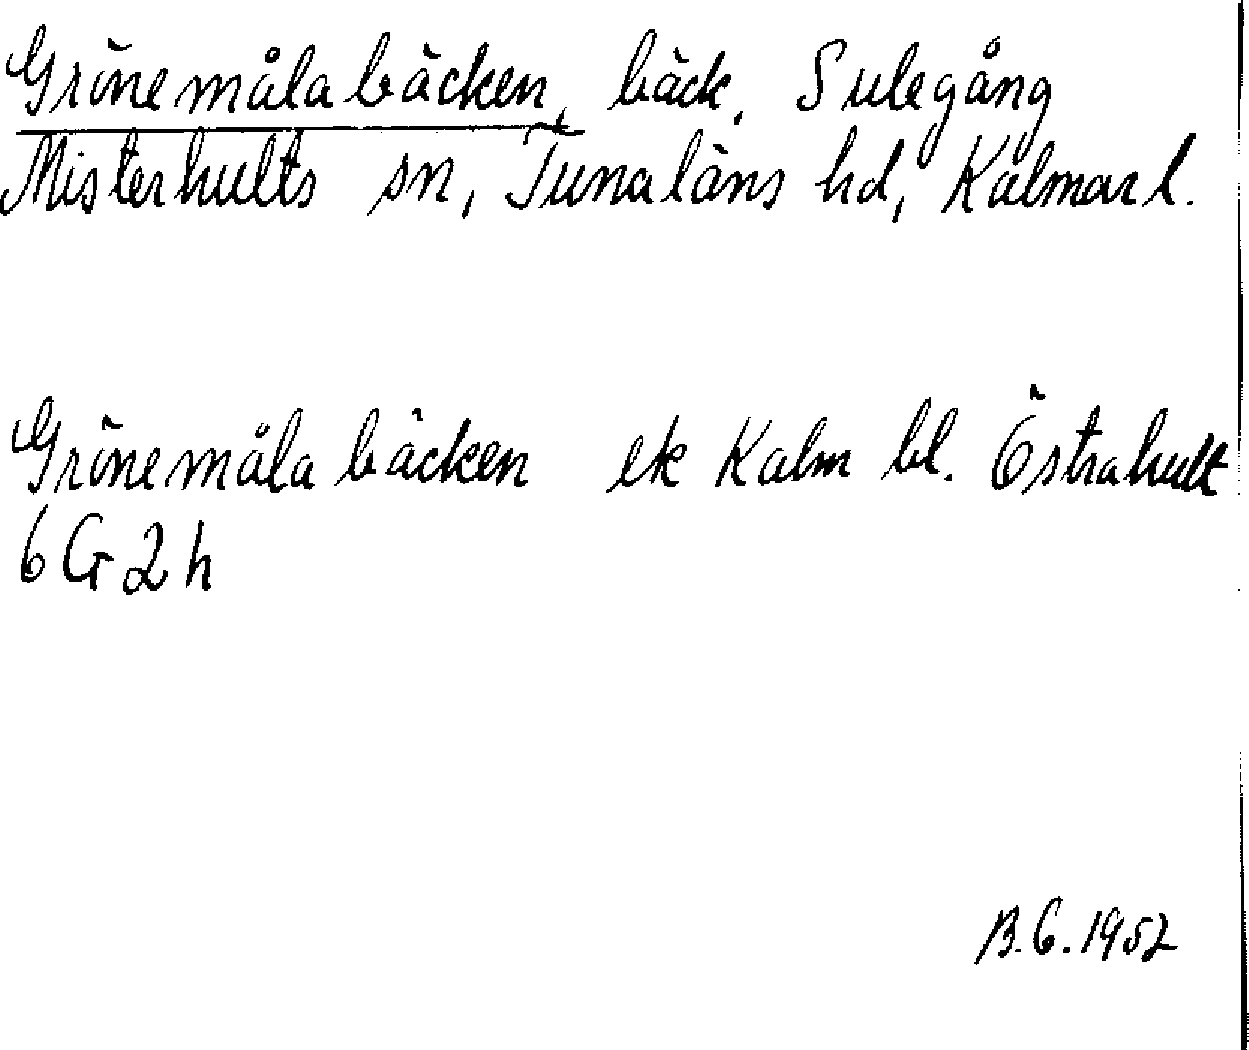 Grönemålabäcken, bäck, Sulegång
Misterhults sn, Tunaläns hd, Kalmar l.
Grönemålabäcken ek Kalm bl. Östrahult
6 G 2 h
B.G. 1952